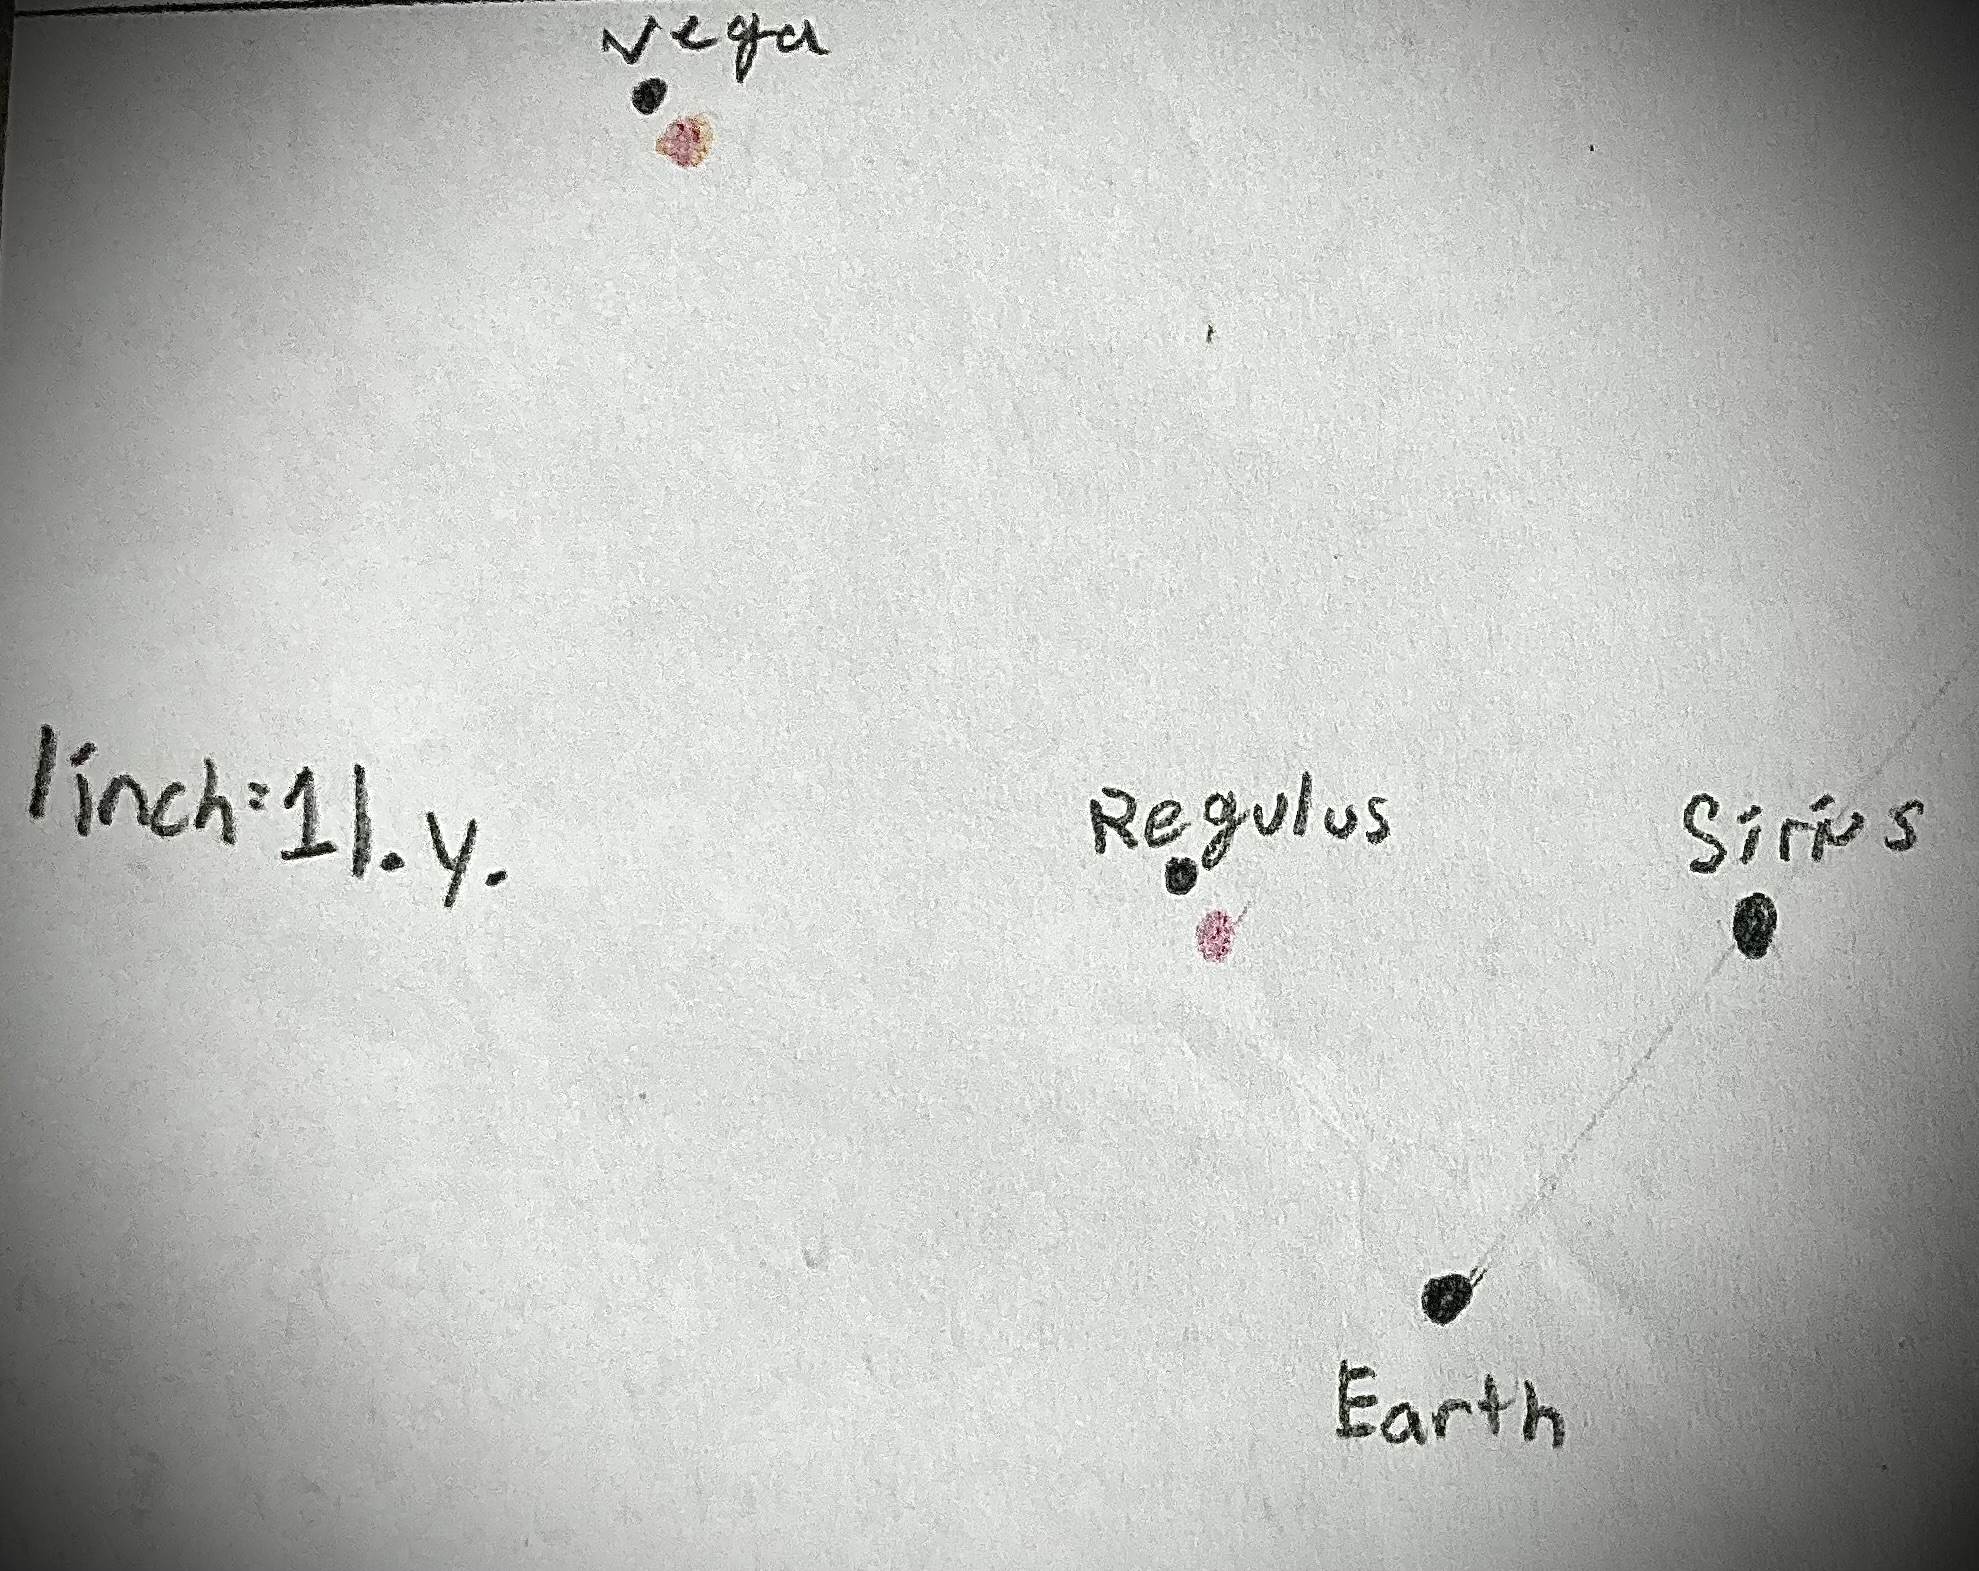 Vega
1inch=1l.y.
Regulus
Sirius
Earth